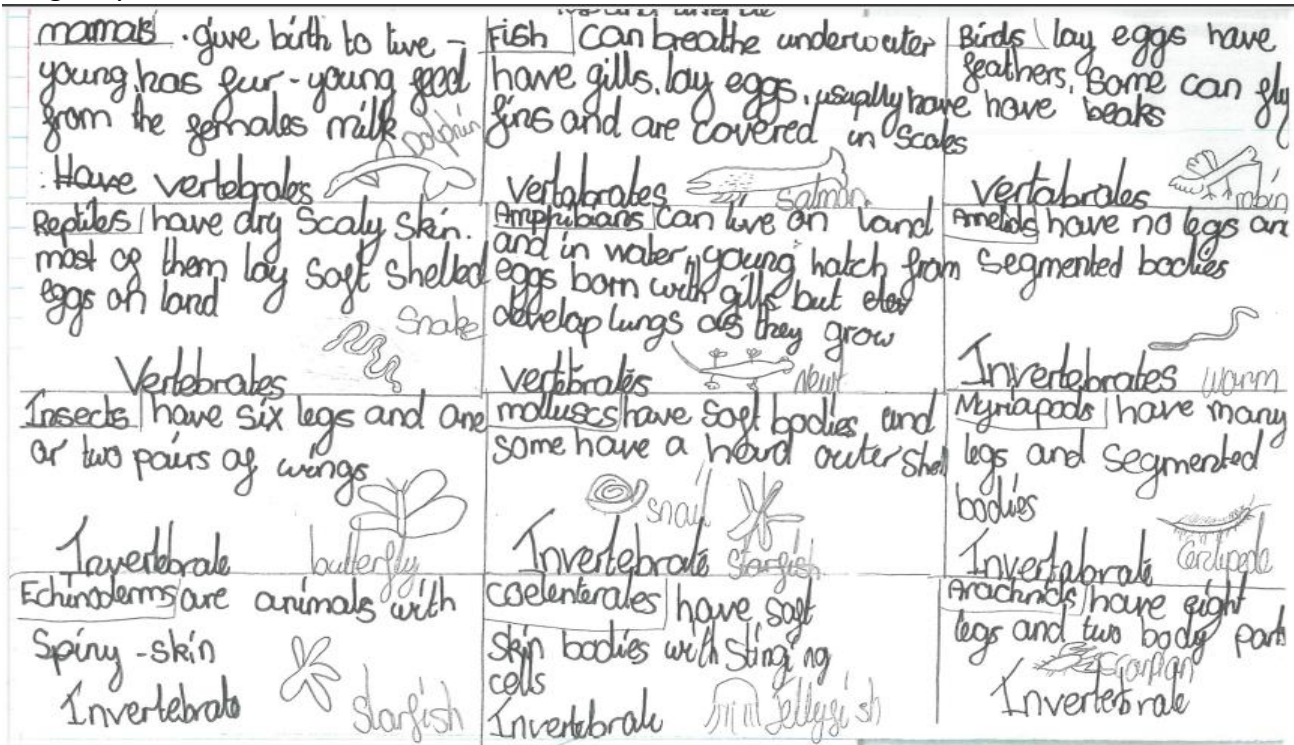 mamals . give birth to live -
young, has fur - young feed
from the females milk
Dolphin
. Have vertebrates
Fish can breathe underwater
have gills, lay eggs, usually have
fins and are covered in scales
Vertabrates
Salmon
Birds lay eggs have
feathers, some can fly
have beaks
Vertabrates
robin
Reptiles have dry Scaly Skin.
most of them lay soft shelled
eggs on land
Snake
Vertebrates
Amphibians can live on land
and in water, young hatch from
eggs born with gills but
develop lungs as they grow
vertebrates
Newt
Annelids have no legs an
segmented bodies
Invertebrates
Worm
Insects have six legs and one
or two pairs of wings
Invertebrate
butterfly
molluscs have soft bodies and
some have a hard outer shell
snail
Invertebrate
Starfish
Myriapods have many
legs and segmented
bodies
Invertabrate
Centipede
Echinoderms are animals with
Spiny - skin
Invertebrate
Starfish
coelenterates have soft
skin bodies with stinging
cells
Invertebrate
Jellyfish
Arachnids have eight
legs and two body parts
Scorpian
Invertebrate